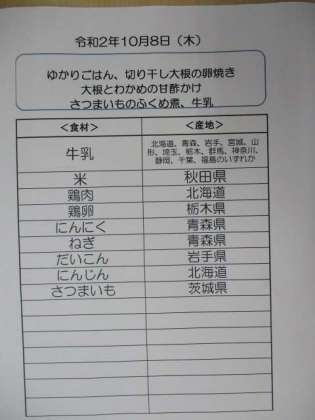 令和2年10月8日（木）
ゆかりごはん、切り干し大根の卵焼き
大根とわかめの甘酢かけ
さつまいものふくめ煮、牛乳
＜食材＞ ＜産地＞
牛乳 北海道、青森、岩手、宮城、山
形、埼玉、栃木、群馬、神奈川、
静岡、千葉、福島のいずれか
米 秋田県
鶏肉 北海道
鶏卵 栃木県
にんにく 青森県
ねぎ 青森県
だいこん 岩手県
にんじん 北海道
さつまいも 茨城県